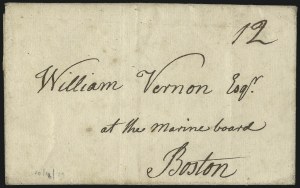 12
William Vernon Esqr.
at the Marine board
Boston